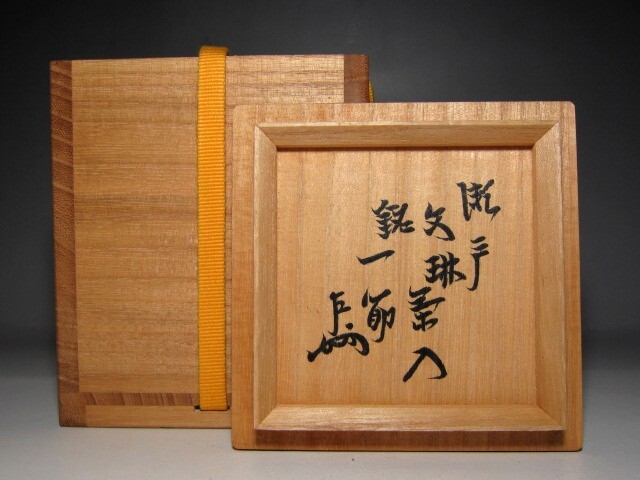 瀬戸
文琳茶入
銘一節